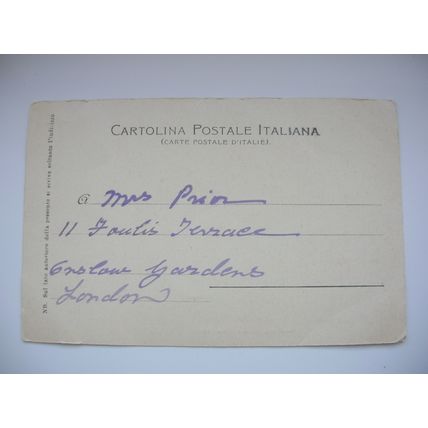 CARTOLINA POSTALE ITALIANA
(CARTE POSTALE D'ITALIE).
A Mrs Prior
11 Foulis Terrace
Onslow Gardens
London
NB. Sul lato anteriore della presente si scrive soltanto l'indirizzo